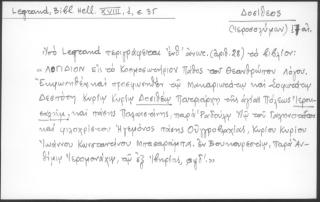 Legrand, Bibl. Hell. XVIII, 1, σ. 35
Δοσίθεος
(Ἱεροσολύμων)
Ὑπὸ Legrand περιγράφεται ὑπ' ἀριθ. (ἀρ. 28) τὸ βιβλίον:
«ΛΟΓΙΔΙΟΝ εἰς τὸ Κοσμοσωτήριον Πάθος τοῦ Θεανθρώπου Λόγου.
καὶ προσφωνηθὲν τῷ Μακαριωτάτῳ καὶ
Δεσπότῃ Κυρίῳ Κυρίῳ Δοσιθέῳ Πατριάρχῃ τῆς ἁγίας Πόλεως Ἱερου-
σαλήμ, καὶ πάσης Παλαιστίνης, παρὰ τοῦ
καὶ φιλοχρίστου Ἡγεμόνος πάσης Οὐγγροβλαχίας, Κυρίου Κυρίου
Ἰωάννου Κωνσταντίνου Μπασαράμπα. ἐν Βουκουρεστίῳ, Παρὰ Ἀν-
θίμου Ἱερομονάχου, τῷ ἐξ Ἰβηρίας,